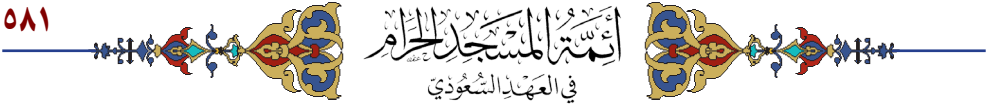 ٥٨١
أَئِمَّةُ المَسْجِدِ الحَرَامِ
في العَهْدِ السُّعُودِيّ